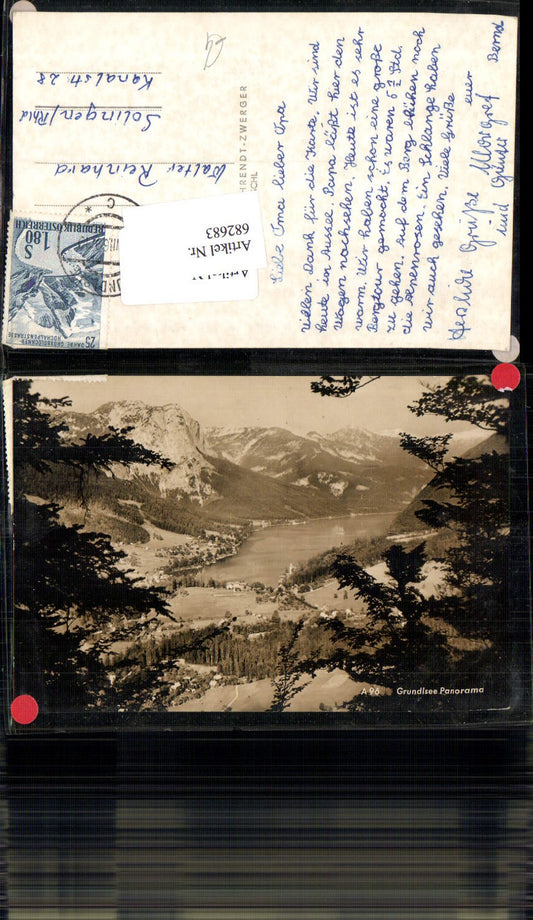 Liebe Ima lieber Ima
Vielen Dank für die Karte. Wir sind
heute in Aussee. Papa läßt hier den
Wagen nachsehen. Heute ist es sehr
warm. Wir haben schon eine große
Bergtour gemacht. Es waren 5 ¾ Std.
zu gehen. Auf dem Berg blühen noch
die Alpenrosen. Ein Schlange haben
wir auch gesehen. Viele Grüße
euer Bernd
Herzliche Grüße Margret
und Günter
HRENDT-ZWERGER
SCHL
Walter Reinhard
Solingen/Rhld
Kanalstr. 28
Artikel Nr.
682683
REPUBLIK ÖSTERREICH
S 1.80
25 JAHRE GROSSGLOCKNER
HOCHALPENSTRASSE
A 96 Grundlsee Panorama